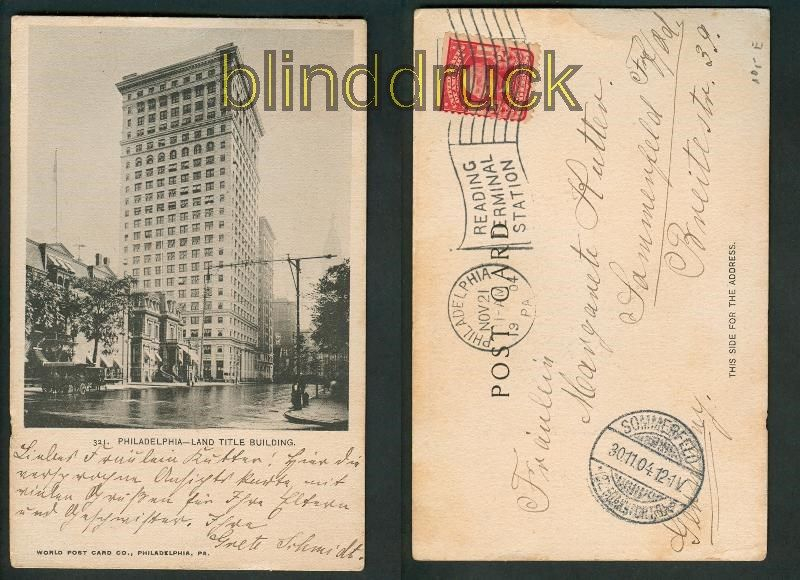 blinddruck
321. PHILADELPHIA—LAND TITLE BUILDING.
Liebes Fräulein Kutter! Hier die
versprochne Ansichtskarte mit
vielen Grüßen für Ihre Eltern
und Geschwister. Ihre
Grete Schmidt.
WORLD POST CARD CO., PHILADELPHIA, PA.
READING
TERMINAL
STATION
PHILADELPHIA
NOV 21
04
PA.
19
POST CARD
THIS SIDE FOR THE ADDRESS.
Fräulein
Margarete Kutter.
Sommerfeld
Breitestr. 39.
Germany.
SOMMERFELD
30.11.04.12-1V
101 E